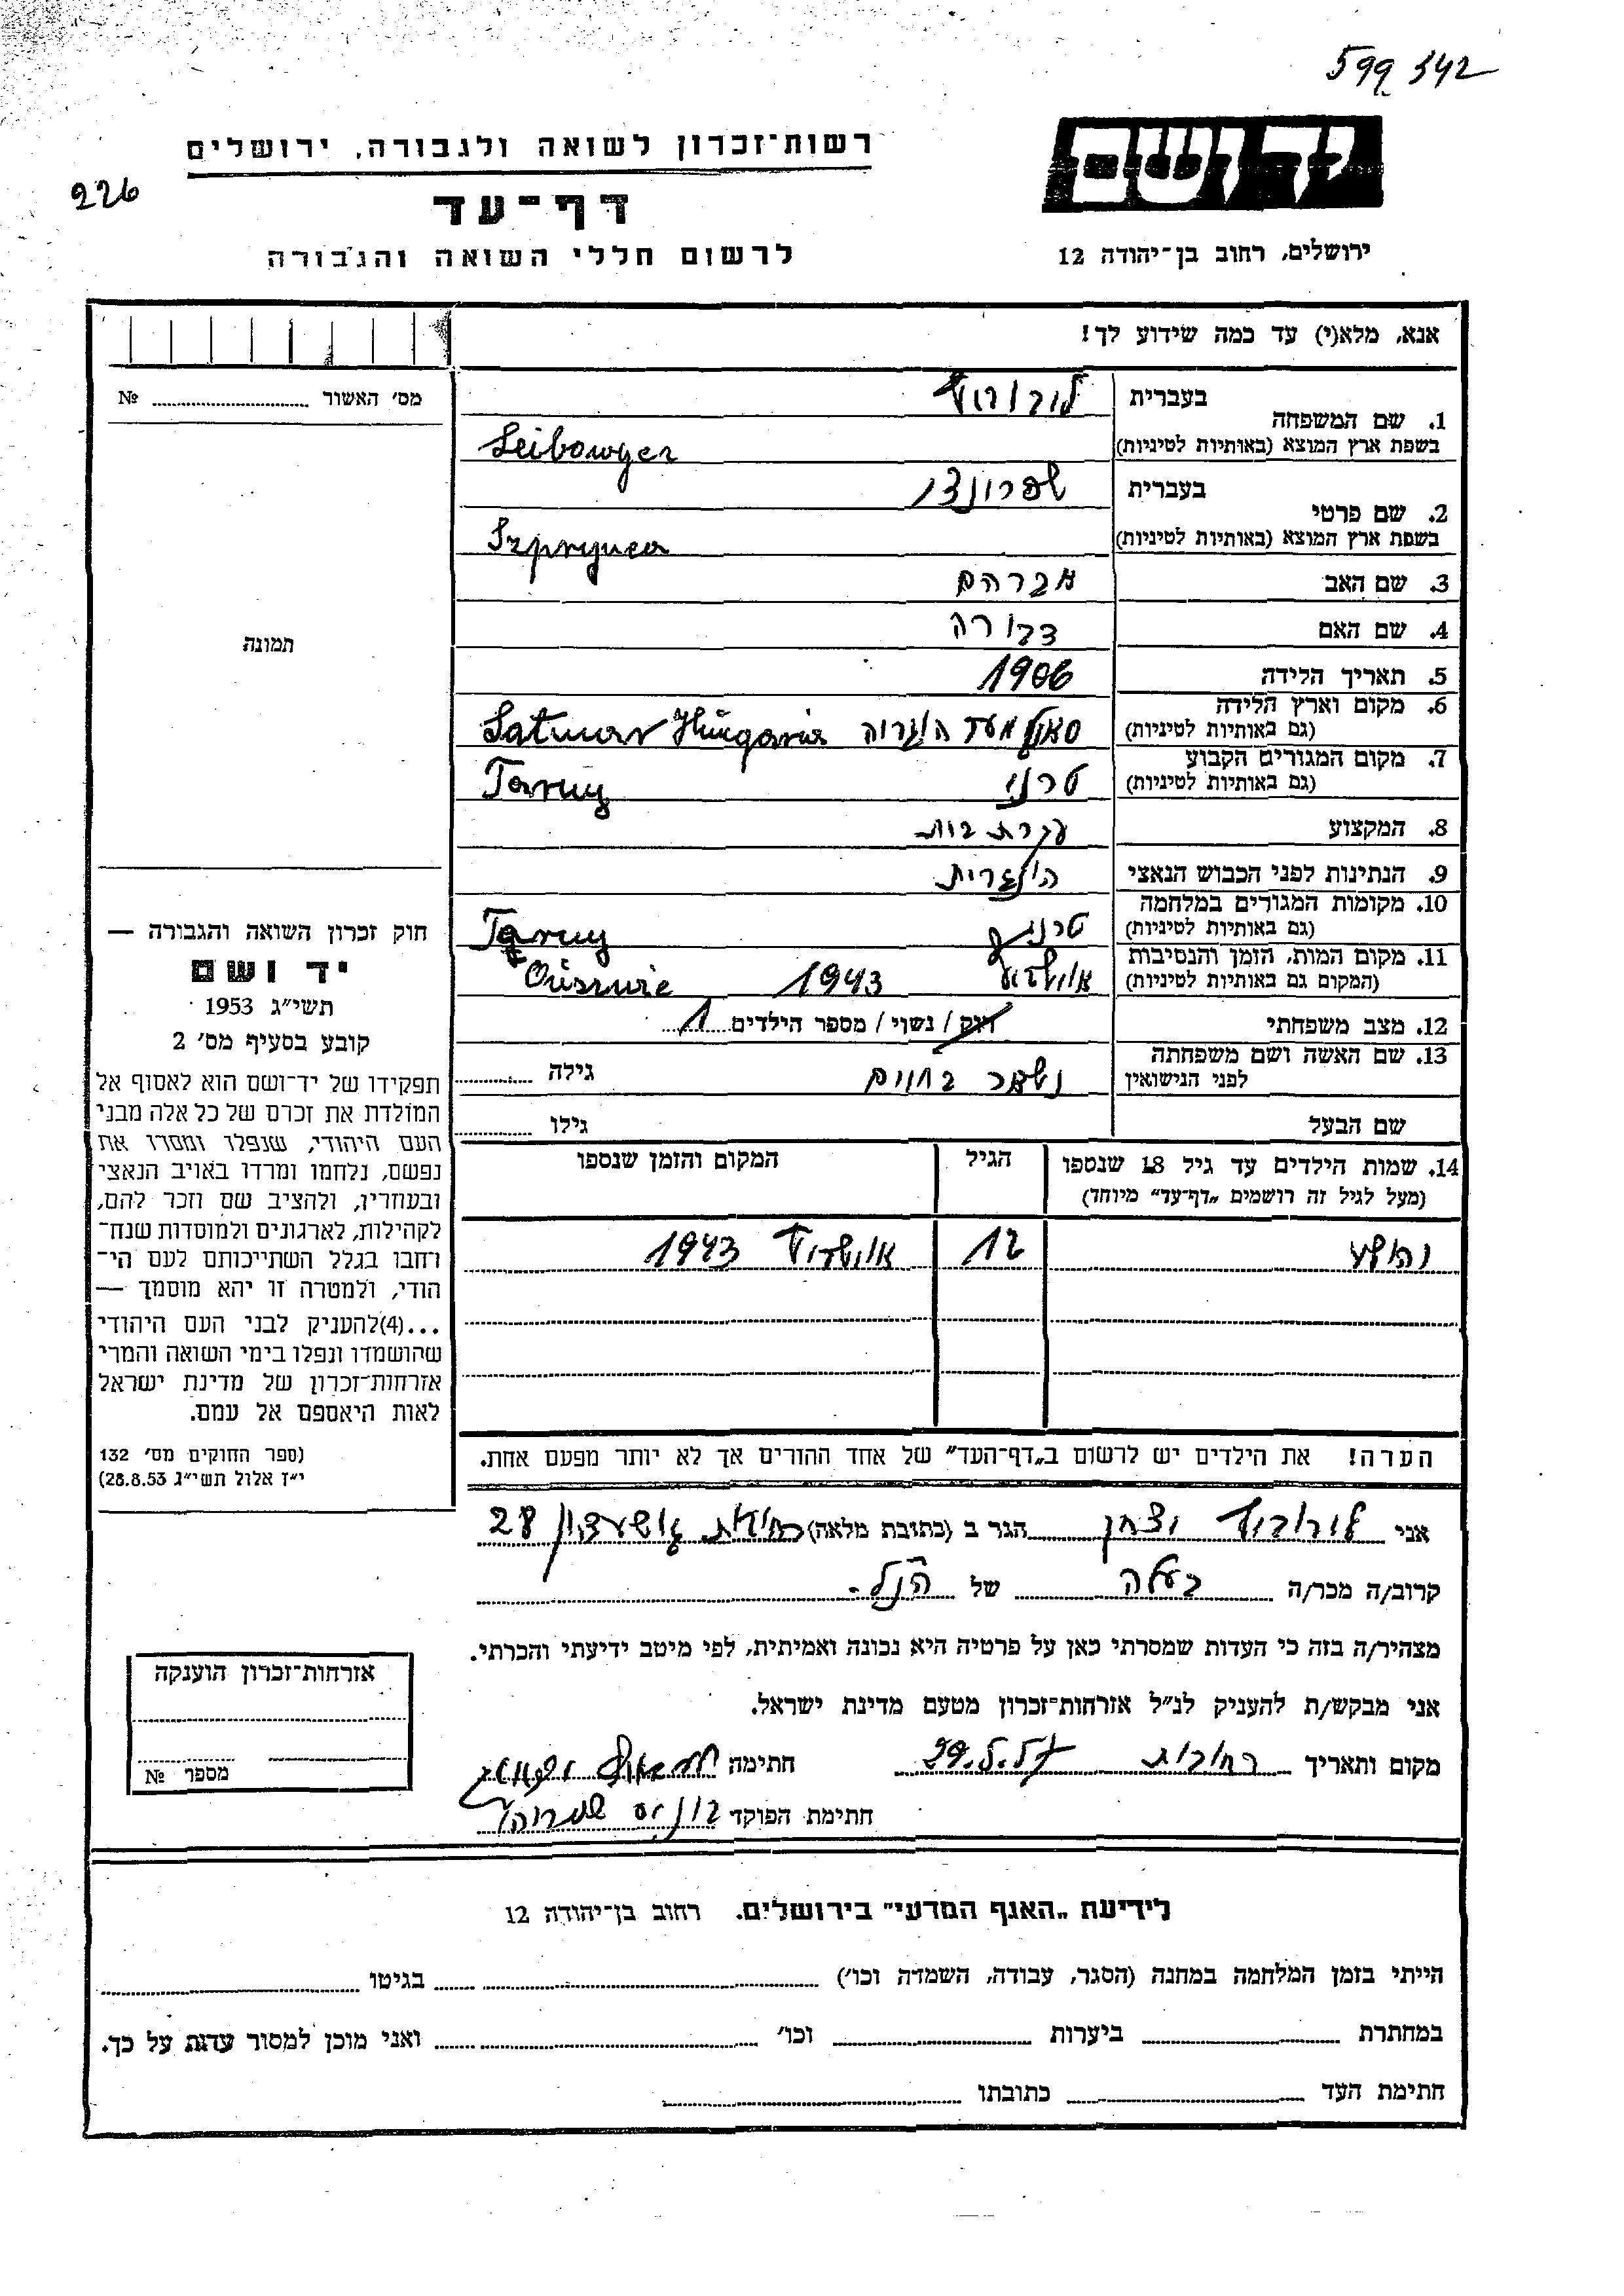 599 342
יד ושם
רשות־זכרון לשואה ולגבורה, ירושלים
226
דף־עד
ירושלים, רחוב בן־יהודה 12
לרשום חללי השואה והגבורה
אנא, מלא(י) עד כמה שידוע לך!
מס׳ האשור № 
1. שם המשפחה
בעברית
בשפת ארץ המוצא (באותיות לטיניות)
Leibowyer
2. שם פרטי
בעברית
בשפת ארץ המוצא (באותיות לטיניות)
Szprynca
3. שם האב אברהם
4. שם האם דבורה
5. תאריך הלידה 1906
6. מקום וארץ הלידה
(גם באותיות לטיניות) Satmar Hungaria
7. מקום המגורים הקבוע
(גם באותיות לטיניות) טרני Tarny
8. המקצוע עקרת בית
9. הנתינות לפני הכבוש הנאצי הונגרית
10. מקומות המגורים במלחמה
(גם באותיות לטיניות) טרני Tarny
11. מקום המות, הזמן והנסיבות
(המקום גם באותיות לטיניות) 1943
12. מצב משפחתי רוק / נשוי / מספר הילדים 1
13. שם האשה ושם משפחתה
לפני הנישואין נשאר בחיים גילה
שם הבעל גילו
14. שמות הילדים עד גיל 18 שנספו
(מעל לגיל זה רושמים „דף־עד״ מיוחד)
הגיל
המקום והזמן שנספו
12 1943
הערה! את הילדים יש לרשום ב„דף־העד״ של אחד ההורים אך לא יותר מפעם אחת.
תמונה
חוק זכרון השואה והגבורה —
יד ושם
תשי״ג 1953
קובע בסעיף מס׳ 2
תפקידו של יד־ושם הוא לאסוף אל
המולדת את זכרם של כל אלה מבני
העם היהודי, שנפלו ומסרו את
נפשם, נלחמו ומרדו באויב הנאצי
ובעוזריו, ולהציב שם וזכר להם,
לקהילות, לארגונים ולמוסדות שנח־
רחבו בגלל השתייכותם לעם הי־
הודי, ולמטרה זו יהא מוסמך —
...(4)להעניק לבני העם היהודי
שהושמדו ונפלו בימי השואה והמרי
אזרחות־זכרון של מדינת ישראל
לאות היאספם אל עמם.
(ספר החוקים מס׳ 132
י״ז אלול תשי״ג 28.8.53)
אני הגר ב (כתובת מלאה) 28
קרוב/ה מכר/ה בעלה של הנ״ל
מצהיר/ה בזה כי העדות שמסרתי כאן על פרטיה היא נכונה ואמיתית, לפי מיטב ידיעתי והכרתי.
אני מבקש/ת להעניק לנ״ל אזרחות־זכרון מטעם מדינת ישראל.
מקום ותאריך רחובות חתימה
חתימת הפוקד
אזרחות־זכרון הוענקה
מספר №
לידיעת „האגף המדעי״ בירושלים. רחוב בן־יהודה 12
הייתי בזמן המלחמה במחנה (הסגר, עבודה, השמדה וכו׳) בגיטו
במחתרת ביערות וכו׳ ואני מוכן למסור עדות על כך.
חתימת העד כתובתו